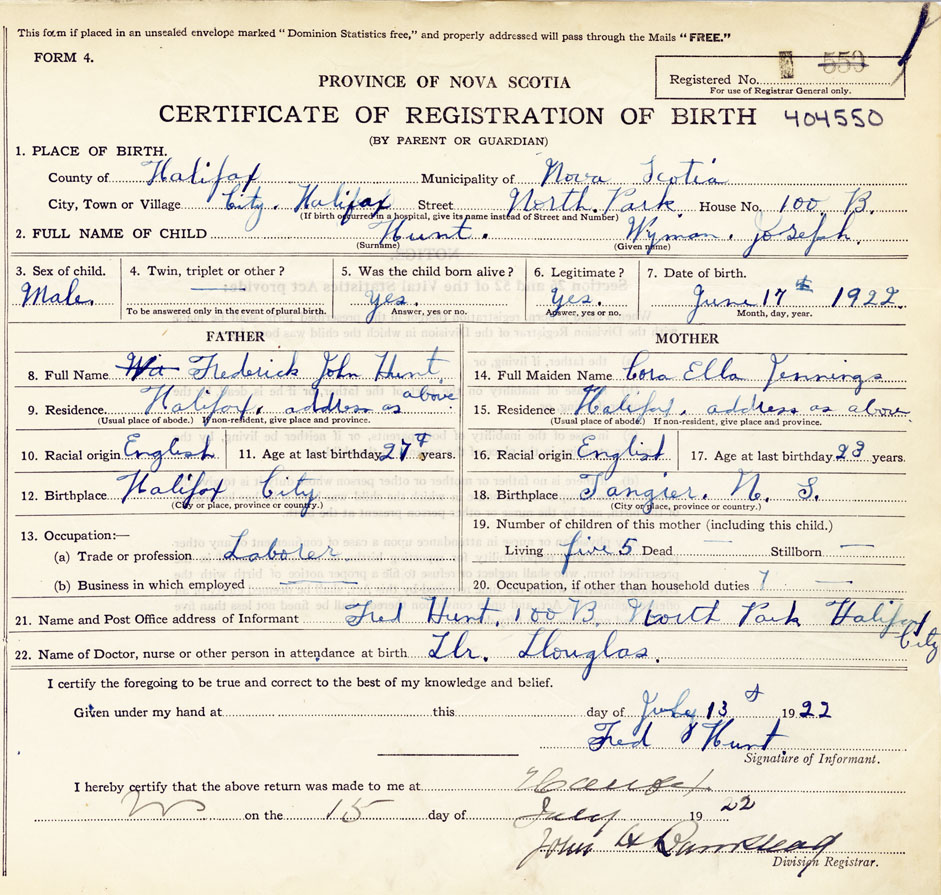 This form if placed in an unsealed envelope marked "Dominion Statistics free," and properly addressed will pass through the Mails "FREE."
FORM 4.
Registered No. 550
For use of Registrar General only.
PROVINCE OF NOVA SCOTIA
CERTIFICATE OF REGISTRATION OF BIRTH 404550
(BY PARENT OR GUARDIAN)
1. PLACE OF BIRTH.
County of Halifax Municipality of Nova Scotia
City, Town or Village City. Halifax Street North. Park. House No. 100. B.
(If birth occurred in a hospital, give its name instead of Street and Number)
2. FULL NAME OF CHILD Hunt. Wyman. Joseph.
(Surname) (Given name)
3. Sex of child. 4. Twin, triplet or other? 5. Was the child born alive? 6. Legitimate? 7. Date of birth.
Male. — Yes. Yes. June 17th 1922.
To be answered only in the event of plural birth. Answer, yes or no. Answer, yes or no. Month, day, year.
FATHER MOTHER
8. Full Name Frederick John Hunt 14. Full Maiden Name Cora Ella Jennings
9. Residence Halifax, address as above 15. Residence Halifax, address as above
(Usual place of abode.) If non-resident, give place and province. (Usual place of abode.) If non-resident, give place and province.
10. Racial origin English 11. Age at last birthday 27 years. 16. Racial origin English 17. Age at last birthday 23 years.
12. Birthplace Halifax City 18. Birthplace Tangier. N. S.
(City or place, province or country.) (City or place, province or country.)
13. Occupation:— 19. Number of children of this mother (including this child.)
(a) Trade or profession Laborer Living five 5 Dead — Stillborn —
(b) Business in which employed — 20. Occupation, if other than household duties —
21. Name and Post Office address of Informant Fred Hunt. 100 B. North Park Halifax City
22. Name of Doctor, nurse or other person in attendance at birth Dr. Douglas.
I certify the foregoing to be true and correct to the best of my knowledge and belief.
Given under my hand at this day of July 13 1922
Fred Hunt.
Signature of Informant.
I hereby certify that the above return was made to me at
on the 15 day of July 1922
John H
Division Registrar.